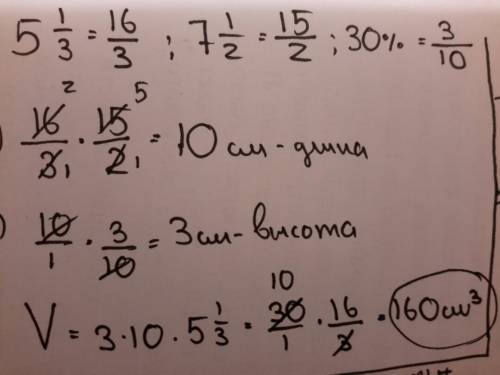 5 1/3 = 16/3 ; 7 1/2 = 15/2 ; 30% = 3/10
) 16/3 · 15/2 = 10 см - длина
2 5
1 1
) 10/1 · 3/10 = 3 см - высота
V = 3 · 10 · 5 1/3 = 30/1 · 16/3 = 160 см³
10